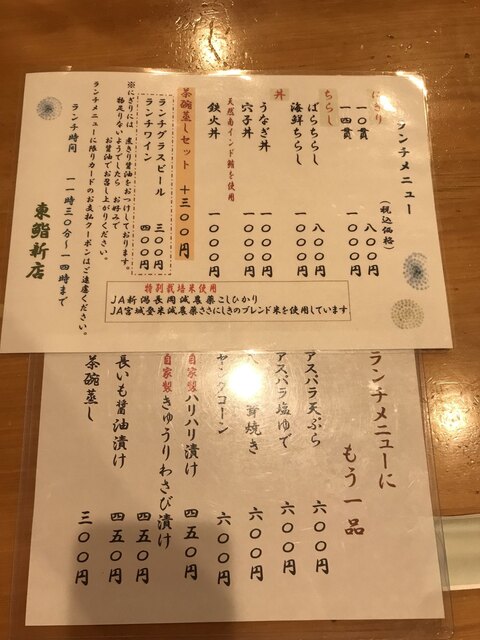 ランチメニュー
(税込価格)
にぎり
一〇貫 八〇〇円
一四貫 一〇〇〇円
ちらし
ばらちらし 八〇〇円
海鮮ちらし 一〇〇〇円
丼
うなぎ丼 一〇〇〇円
穴子丼 一〇〇〇円
天然南インド鮪を使用
鉄火丼 一〇〇〇円
茶碗蒸しセット +三〇〇円
ランチグラスビール 三〇〇円
ランチワイン 四〇〇円
※にぎりには 煮きり醤油をおつけしております。
物足りないようでしたら お好みで
お醤油でお召し上がりください。
ランチメニューに限りカードのお支払クーポンはご遠慮ください。
ランチ時間 一一時三〇分~一四時まで
東鮨新店
特別栽培米使用
JA新潟長岡減農薬こしひかり
JA宮城登米減農薬ささにしきのブレンド米を使用しています
ランチメニューに
もう一品
アスパラ天ぷら 六〇〇円
アスパラ塩ゆで 六〇〇円
茸焼き 六〇〇円
ヤングコーン 六〇〇円
自家製ハリハリ漬け 四五〇円
自家製きゅうりわさび漬け 四五〇円
長いも醤油漬け 四五〇円
茶碗蒸し 三〇〇円